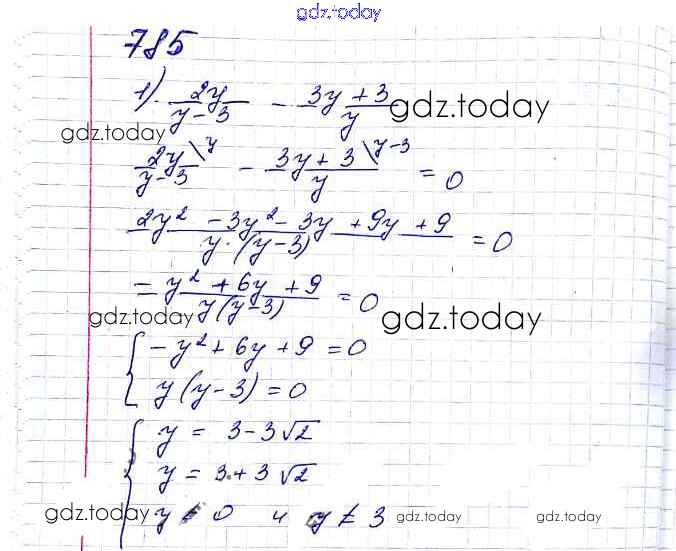 gdz.today
785
1) 2y/(y-3) - (3y+3)/y gdz.today
gdz.today
2y/(y-3) \y - (3y+3)/y \y-3 = 0
(2y² - 3y² - 3y + 9y + 9)/(y·(y-3)) = 0
= (y² + 6y + 9)/(y(y-3)) = 0
gdz.today gdz.today
{ -y² + 6y + 9 = 0
y(y-3) = 0
{ y = 3 - 3√2
y = 3 + 3√2
y ≠ 0 и y ≠ 3
gdz.today gdz.today gdz.today